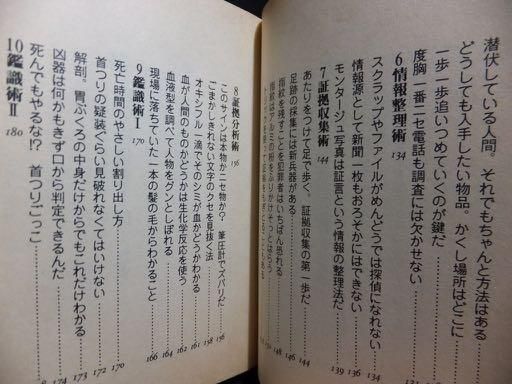 潜伏している人間。それでもちゃんと方法はある
どうしても入手したい物品。かくし場所はどこに
一歩一歩追いつめていくのが鍵だ
度胸一番ニセ電話も調査には欠かせない
6 情報整理術 134
スクラップやファイルがめんどうでは探偵になれない 134
情報源として新聞一枚もおろそかにはできない 136
モンタージュ写真は証言という情報の整理法だ 139
7 証拠収集術 144
あたりをつけて足で歩く、証拠収集の第一歩だ 144
足跡の採集には新兵器がある 146
指紋を残すことを犯罪者はいちばん恐れる 148
指紋はアルミの粉をふりかけそっとはらう
8 証拠分析術 156
このサインは本物かニセ物か？ 筆圧計でズバリだ 156
ごまかしきれない文字のクセを見抜く法 158
オキシフル一滴でそのシミが血かどうかわかる 161
血が人間のものかどうかは生化学反応を使う 162
血液型を調べて人物をグンとしぼれる 164
現場に落ちていた一本の髪の毛からわかること 166
9 鑑識術Ⅰ 170
死亡時間のやさしい割り出し方 170
首つりの疑装ぐらい見破れなくてはいけない 172
解剖。胃ぶくろの中身だけからでもこれだけわかる 173
凶器は何かもきず口から判定できるんだ 174
死んでもやるな!? 首つりごっこ
10 鑑識術Ⅱ 180